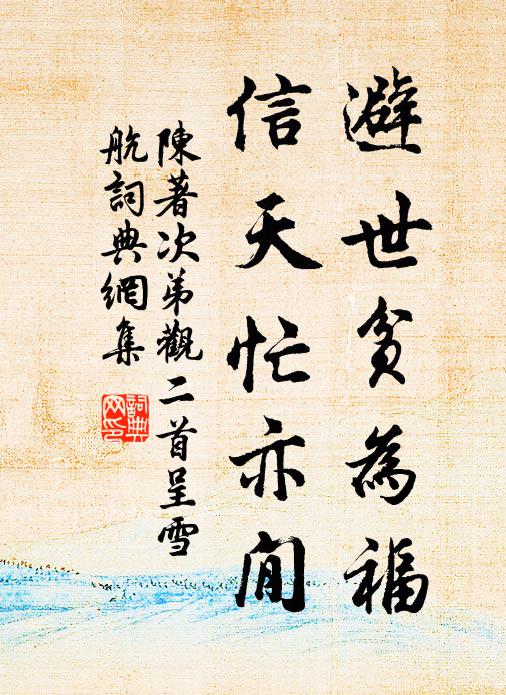 避世貧為福
信天忙亦閒
陳著次弟觀二首呈雪
航詞典網集
詞典
網印